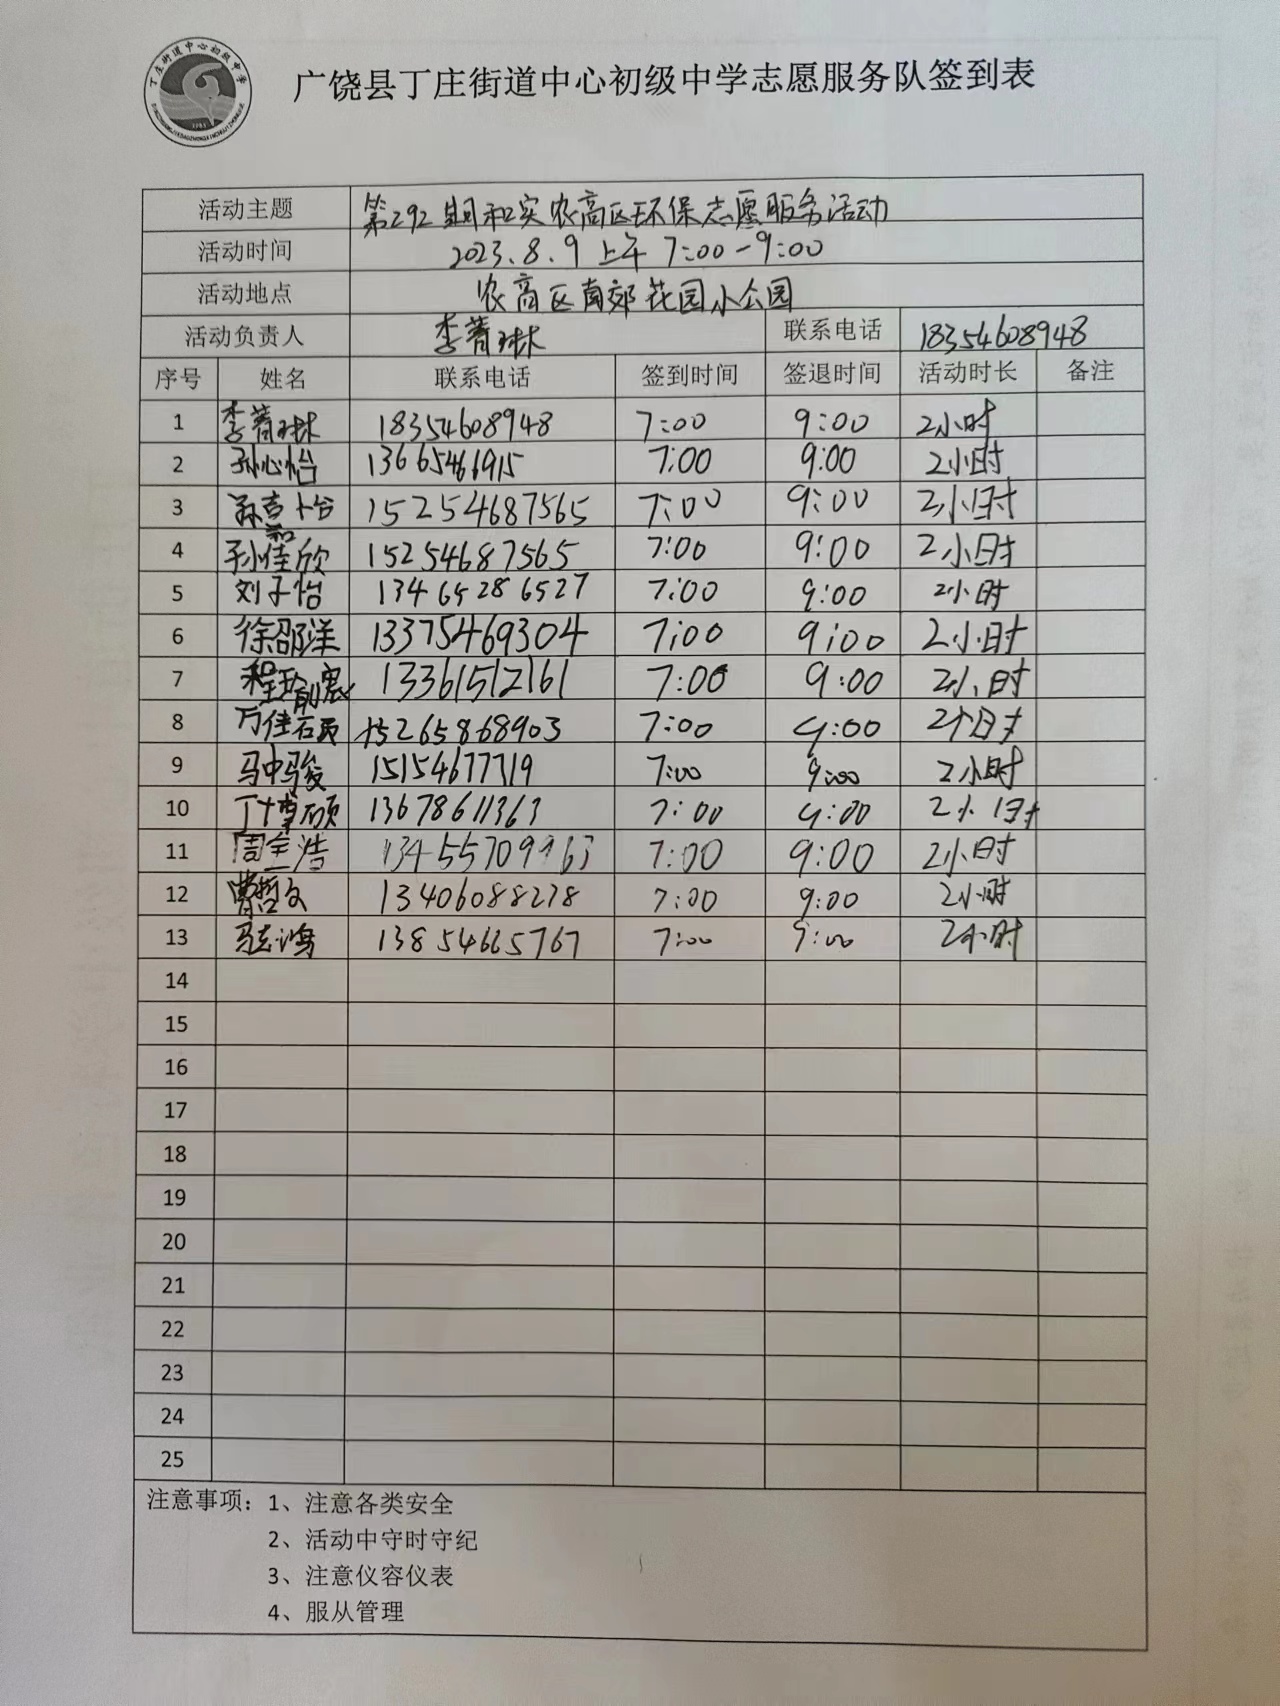 丁庄街道中心初级中学
广饶县丁庄街道中心初级中学志愿服务队签到表
活动主题 第292期和实农高区环保志愿服务活动
活动时间 2023.8.9 上午 7:00-9:00
活动地点 农高区南郊花园小公园
活动负责人 李菁琳 联系电话 18354608948
序号 姓名 联系电话 签到时间 签退时间 活动时长 备注
1 李菁琳 18354608948 7:00 9:00 2小时
2 孙心怡 13665466915 7:00 9:00 2小时
3 15254687565 7:00 9:00 2小时
4 孙佳欣 15254687565 7:00 9:00 2小时
5 刘子怡 13465286527 7:00 9:00 2小时
6 徐邵洋 13375469304 7:00 9:00 2小时
7 13361512161 7:00 9:00 2小时
8 万佳 15265868903 7:00 9:00 2小时
9 马中骏 15154677719 7:00 9:00 2小时
10 丁博硕 13678611363 7:00 9:00 2小时
11 周圣浩 7:00 9:00 2小时
12 曹哲文 13406088278 7:00 9:00 2小时
13 马志鸿 13854665767 7:00 9:00 2小时
14
15
16
17
18
19
20
21
22
23
24
25
注意事项：1、注意各类安全
2、活动中守时守纪
3、注意仪容仪表
4、服从管理